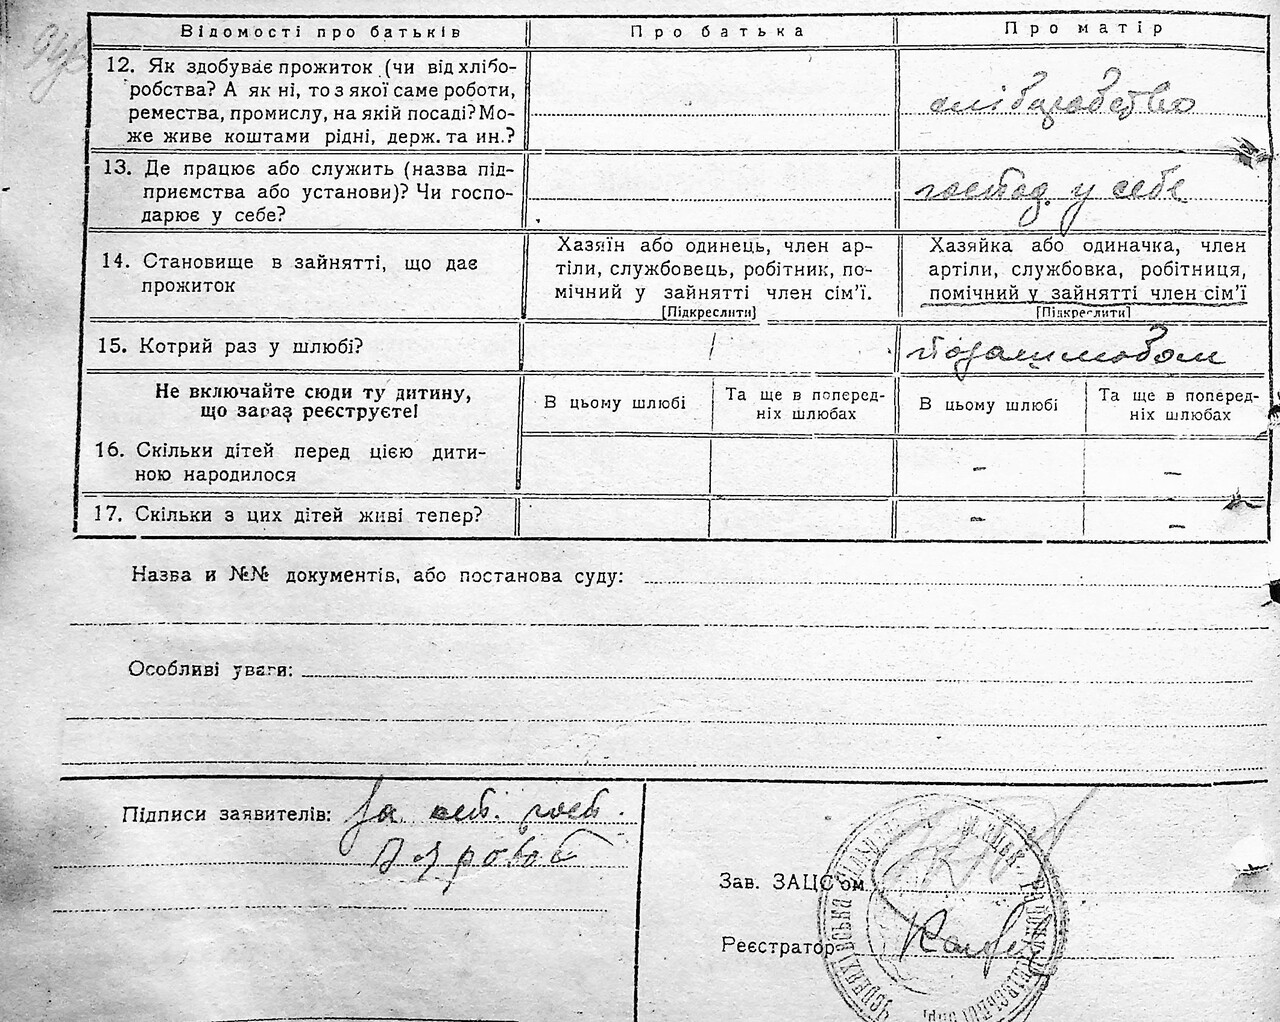 Відомості про батьків Про батька Про матір
12. Як здобуває прожиток (чи від хлібо-
робства? А як ні, то з якої саме роботи,
ремества, промислу, на якій посаді? Мо-
же живе коштами рідні, держ. та ин.?
хліборобство
13. Де працює або служить (назва під-
приємства або установи)? Чи госпо-
дарює у себе?
господ. у себе
14. Становище в зайнятті, що дає
прожиток
Хазяїн або одинець, член ар-
тіли, службовець, робітник, по-
мічний у зайнятті член сім'ї.
[Підкреслити]
Хазяйка або одиначка, член
артіли, службовка, робітниця,
помічний у зайнятті член сім'ї
[Підкреслити]
15. Котрий раз у шлюбі?
поза шлюбом
Не включайте сюди ту дитину,
що зараз реєструєте!
В цьому шлюбі
Та ще в поперед-
ніх шлюбах
В цьому шлюбі
Та ще в поперед-
ніх шлюбах
16. Скільки дітей перед цією дити-
ною народилося
– –
17. Скільки з цих дітей живі тепер?
– –
Назва и №№ документів, або постанова суду:
Особливі уваги:
Підписи заявителів: За
Зав. ЗАЦС'ом
Реєстратор